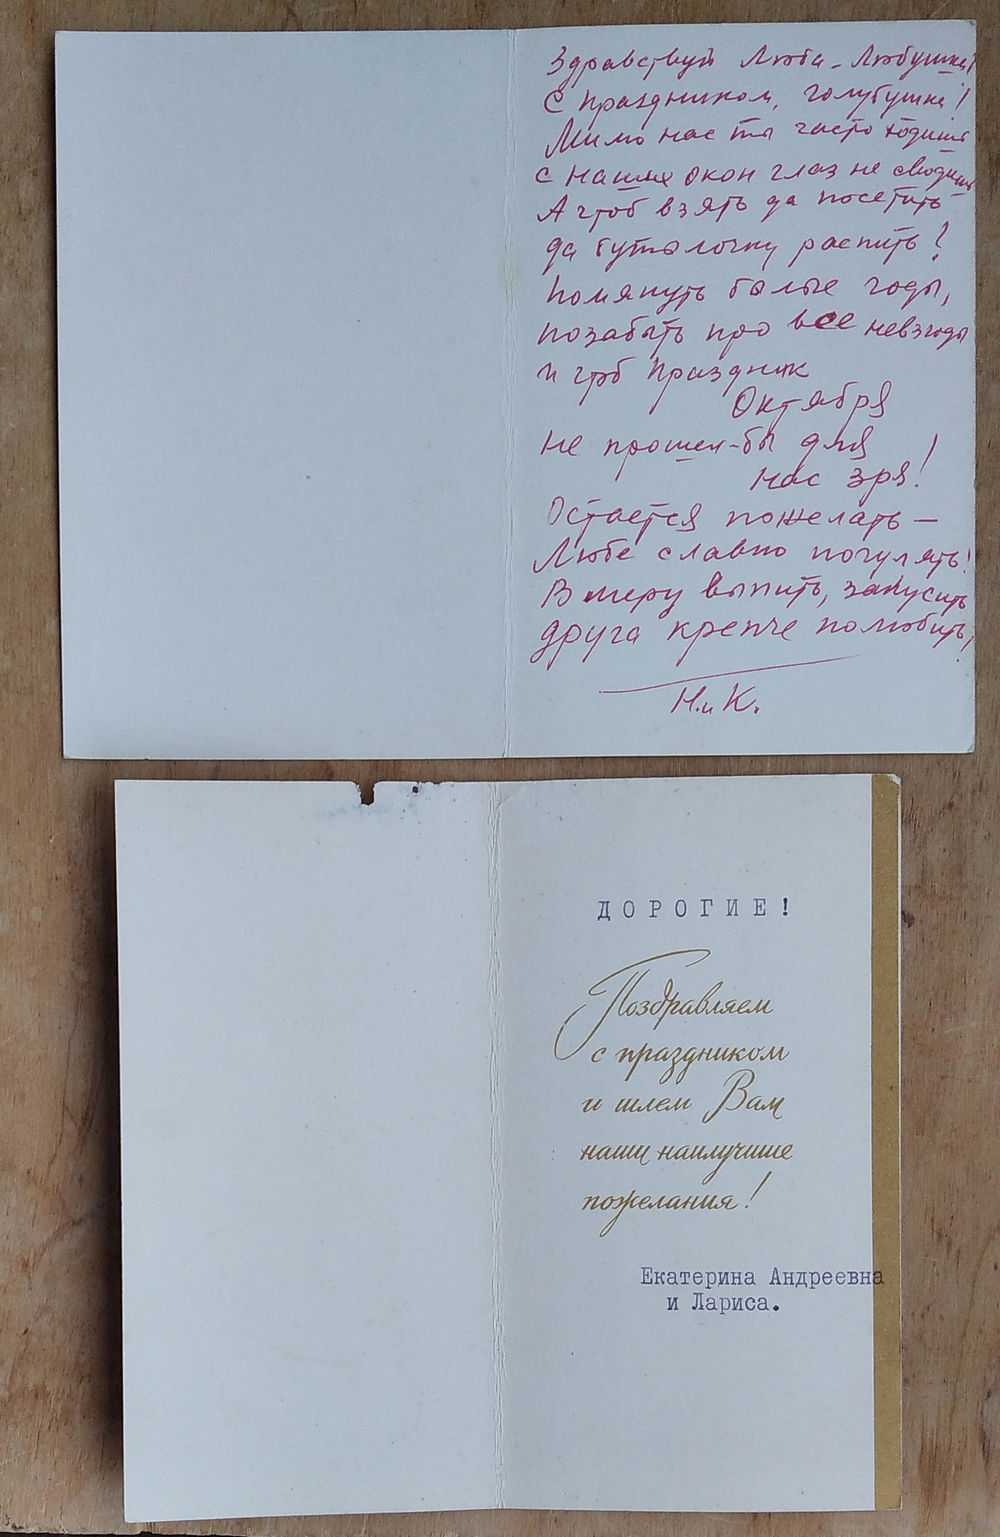 Здравствуй Люба-Любушка!
С праздником, голубушка!
Мимо нас ты часто ходишь
с наших окон глаз не сводишь
А чтоб взять да посетить
да бутылочку распить?
Помянуть былые годы,
позабыть про все невзгоды
и чтоб Праздник
Октября
не прошел-бы для
нас зря!
Остается пожелать —
Любе славно погулять!
В меру выпить, закусить
друга крепче полюбить!
Н. и К.
ДОРОГИЕ!
Поздравляем
с праздником
и шлем Вам
наши наилучшие
пожелания!
Екатерина Андреевна
и Лариса.